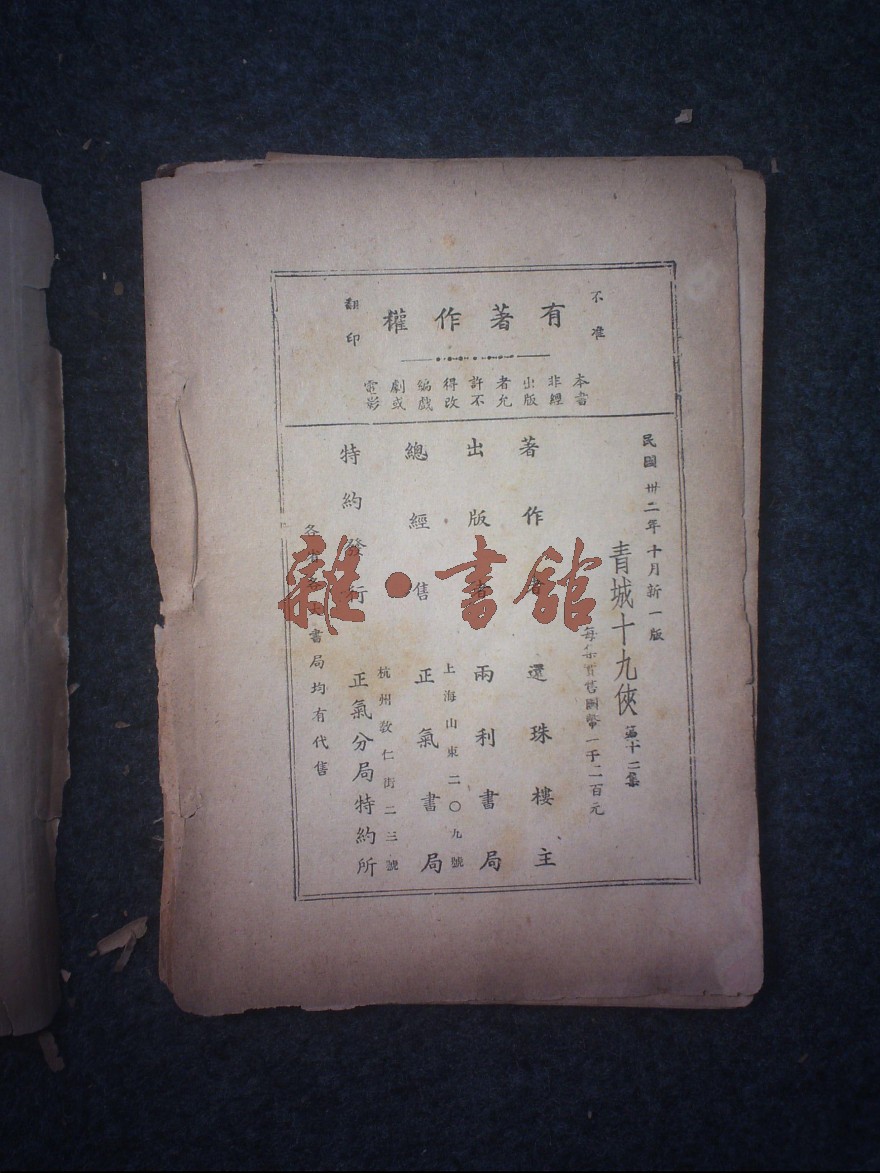 不准
有著作權
翻印
本書非經出版者允許不得改編戲劇或電影
民國卅二年十月新一版
青城十九俠 第十二集
每集售國幣一千二百元
著作者 還珠樓主
出版者 兩利書局
上海山東二〇九號
總經售 正氣書局
杭州敎仁街二三號
特約發行 正氣分局特約所
各省各大書局均有代售
雜·書館